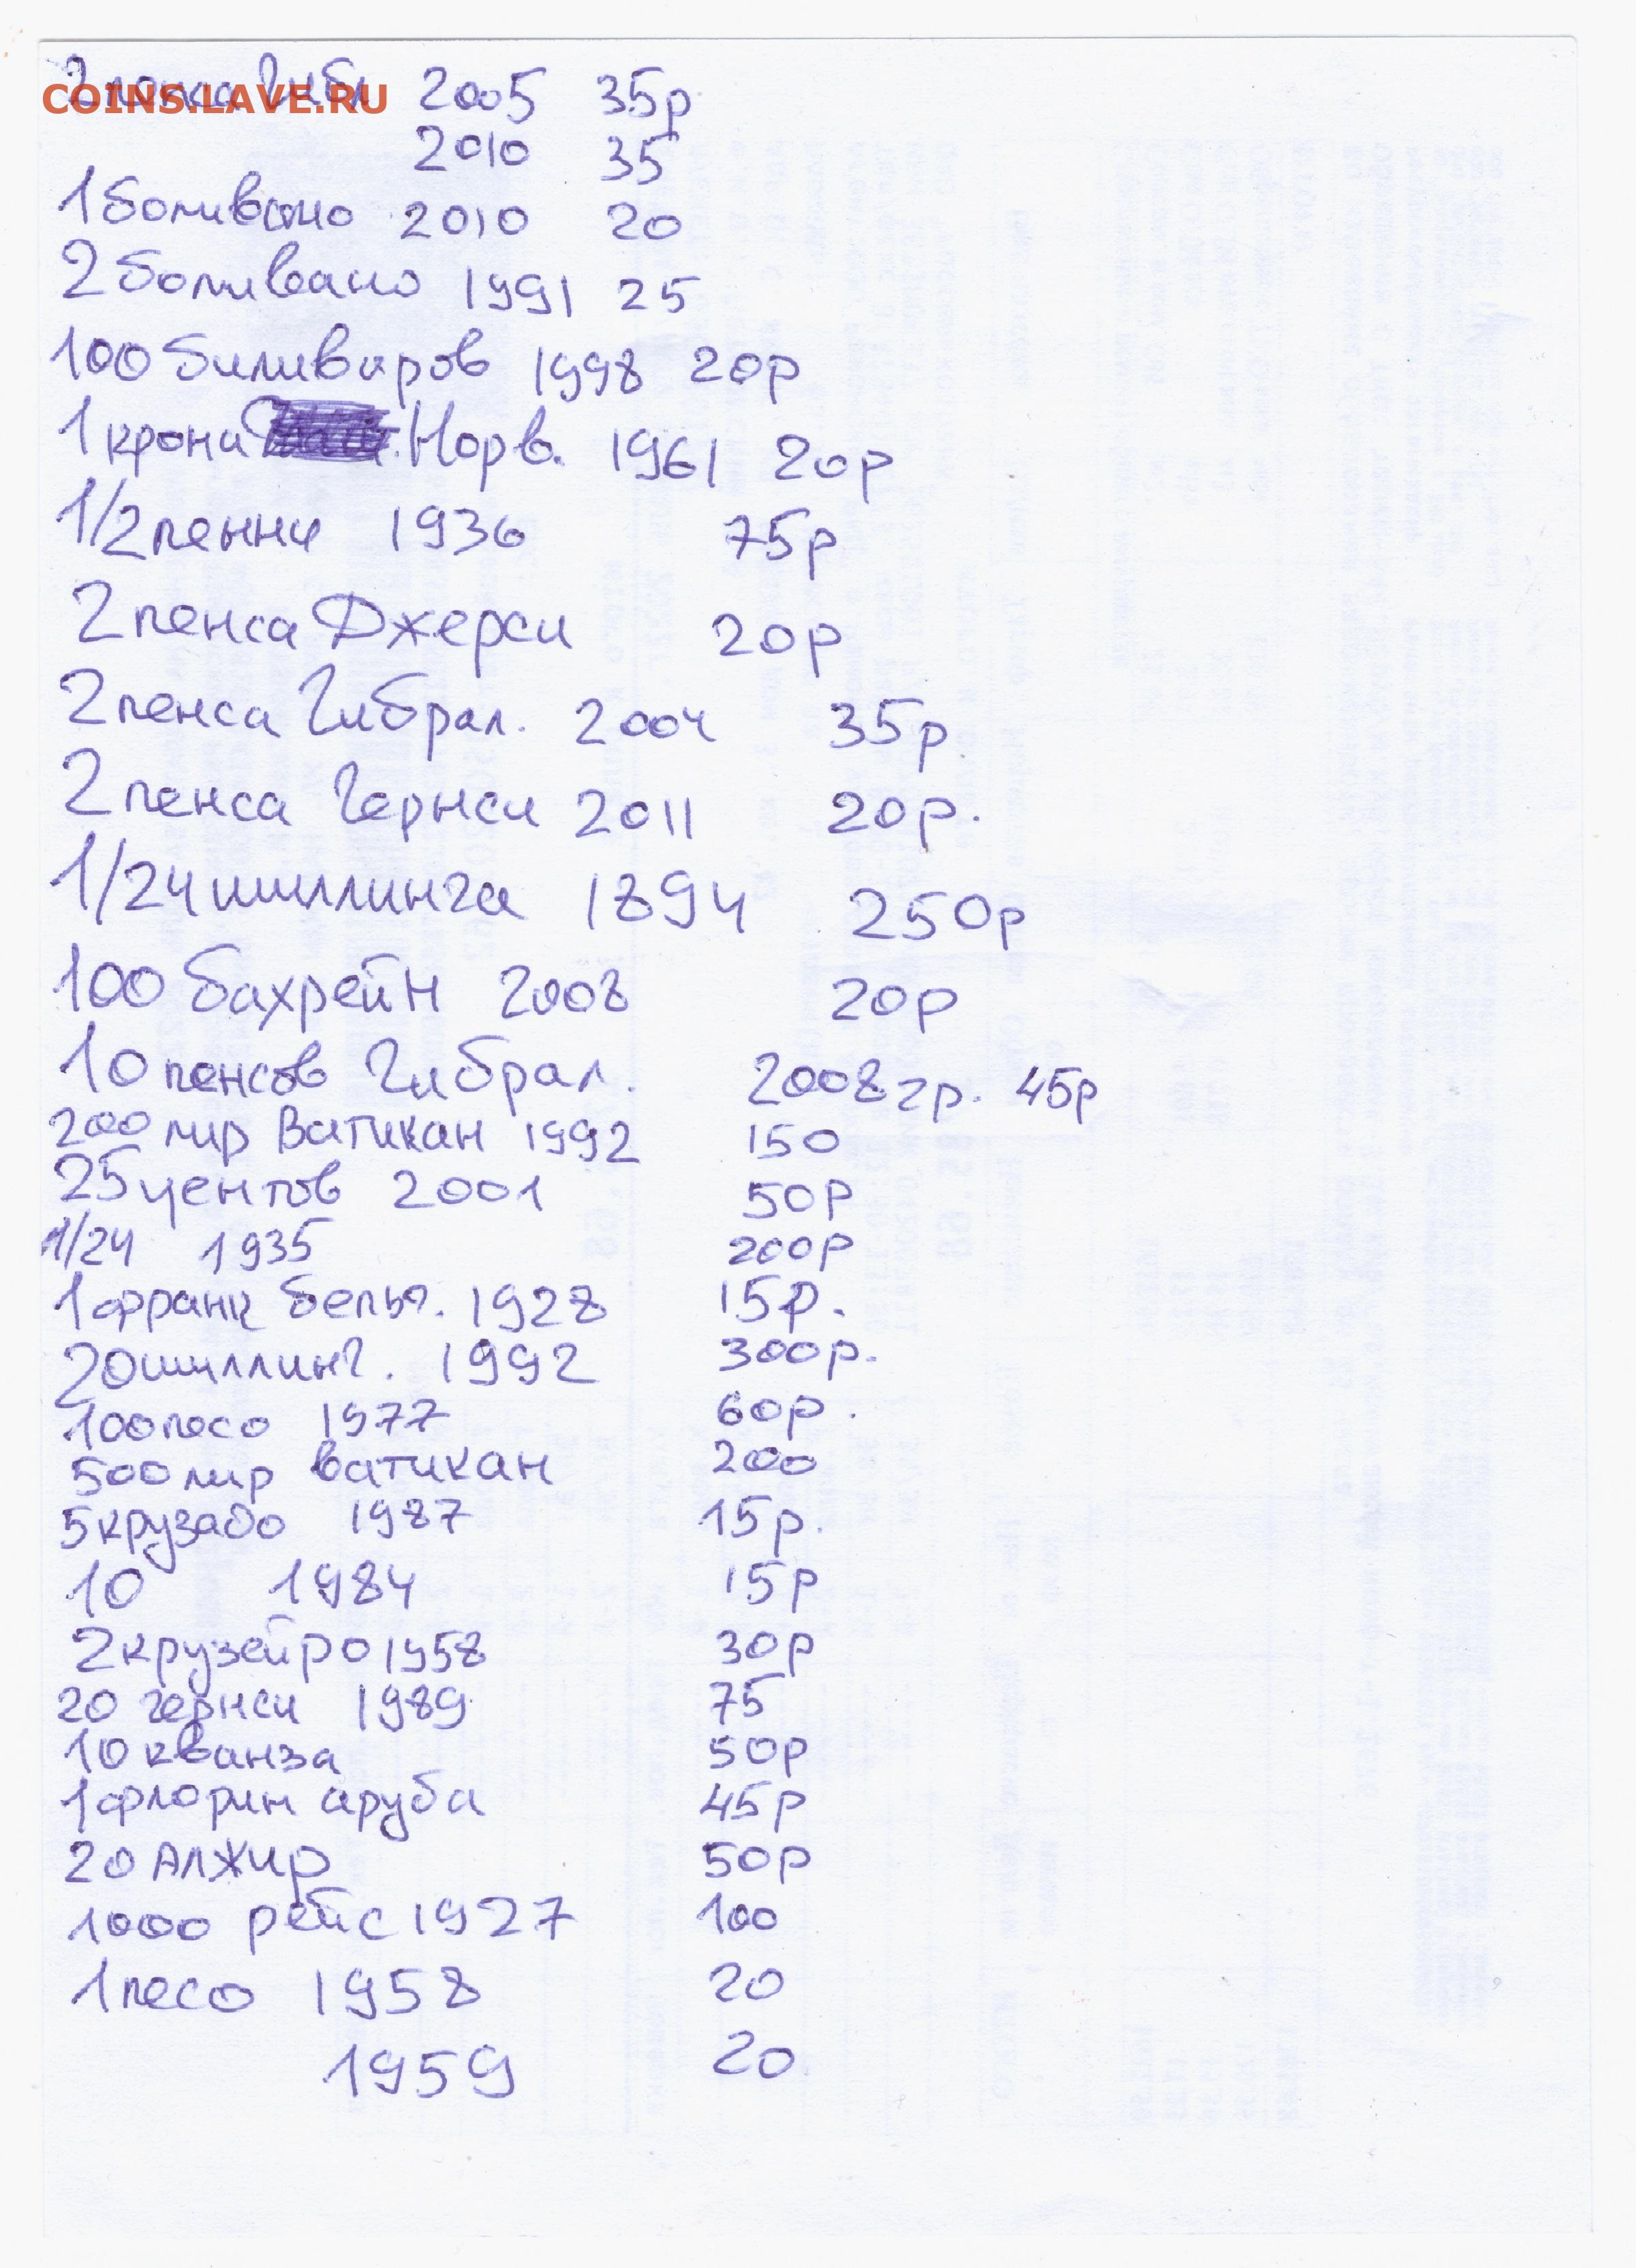 COINS.LAVE.RU
2 пенса Гибл 2005 35р
2010 35
1 боливано 2010 20
2 боливано 1991 25
100 биливаров 1998 20р
1 крона Норв. 1961 20р
1/2 пенни 1936 75р
2 пенса Джерси 20р
2 пенса Гибрал. 2004 35р
2 пенса Гернси 2011 20р.
1/24 шиллинга 1894 250р
100 бахрейн 2008 20р
10 пенсов Гибрал. 2008 гр. 45р
200 лир Ватикан 1992 150
25 центов 2001 50р
1/24 1935 200р
1 франк бельг. 1928 15р.
20 шиллинг. 1992 300р.
100 песо 1977 60р.
500 лир Ватикан 200
5 крузадо 1987 15р.
10 1984 15р
2 крузейро 1958 30р
20 гернси 1989 75
10 кванза 50р
1 флорин аруба 45р
20 Алжир 50р
1000 рейс 1927 100
1 песо 1958 20
1959 20